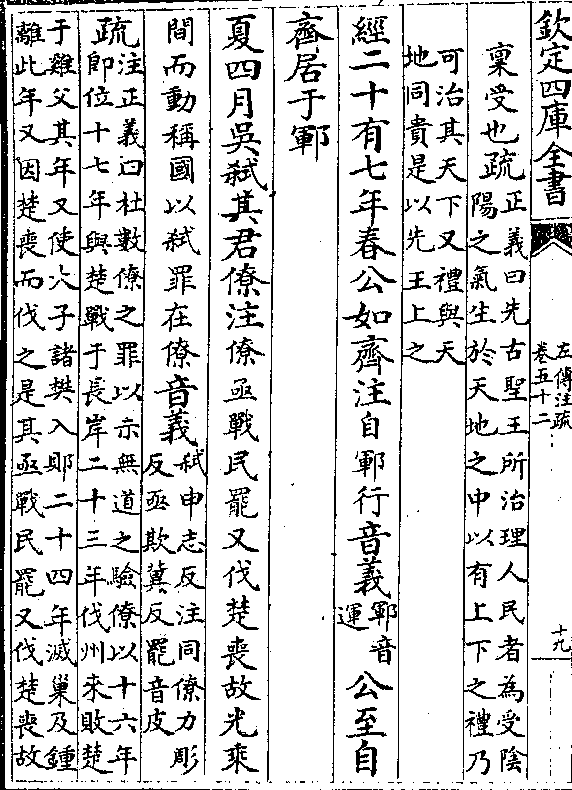 欽定四庫全書
左傳注疏
卷五十二
十九
稟受也疏正義曰先古聖王所治理人民者為受陰
陽之氣生於天地之中以有上下之禮乃
可治其天下又禮與天
地同貴是以先王上之
經二十有七年春公如齊注自鄆行音義鄆音運公至自
齊居于鄆
夏四月吳弒其君僚注僚亟戰民罷又伐楚喪故光乘
間而動稱國以弒罪在僚音義弒申志反注同僚力彫
反亟欺冀反罷音皮
疏注正義曰杜數僚之罪以示無道之驗僚以十六年
即位十七年與楚戰于長岸二十三年伐州來敗楚
于雞父其年又使大子諸樊入郹二十四年滅巢及鍾
離此年又因楚喪而伐之是其亟戰民罷又伐楚喪故